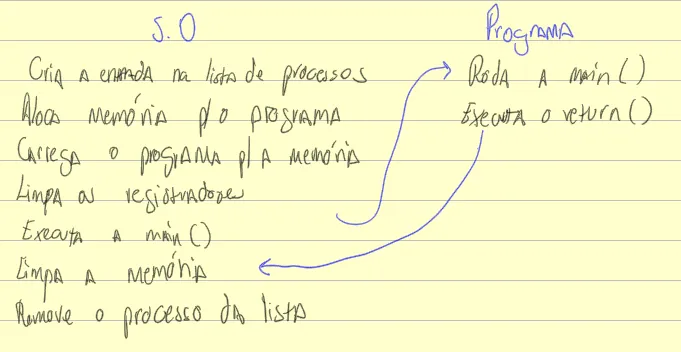 S.O
Cria a entrada na lista de processos
Aloca memória p/ o programa
Carrega o programa p/ a memória
Limpa os registradores
Executa a main()
Limpa a memória
Remove o processo da lista
Programa
Roda a main()
Executa o return()